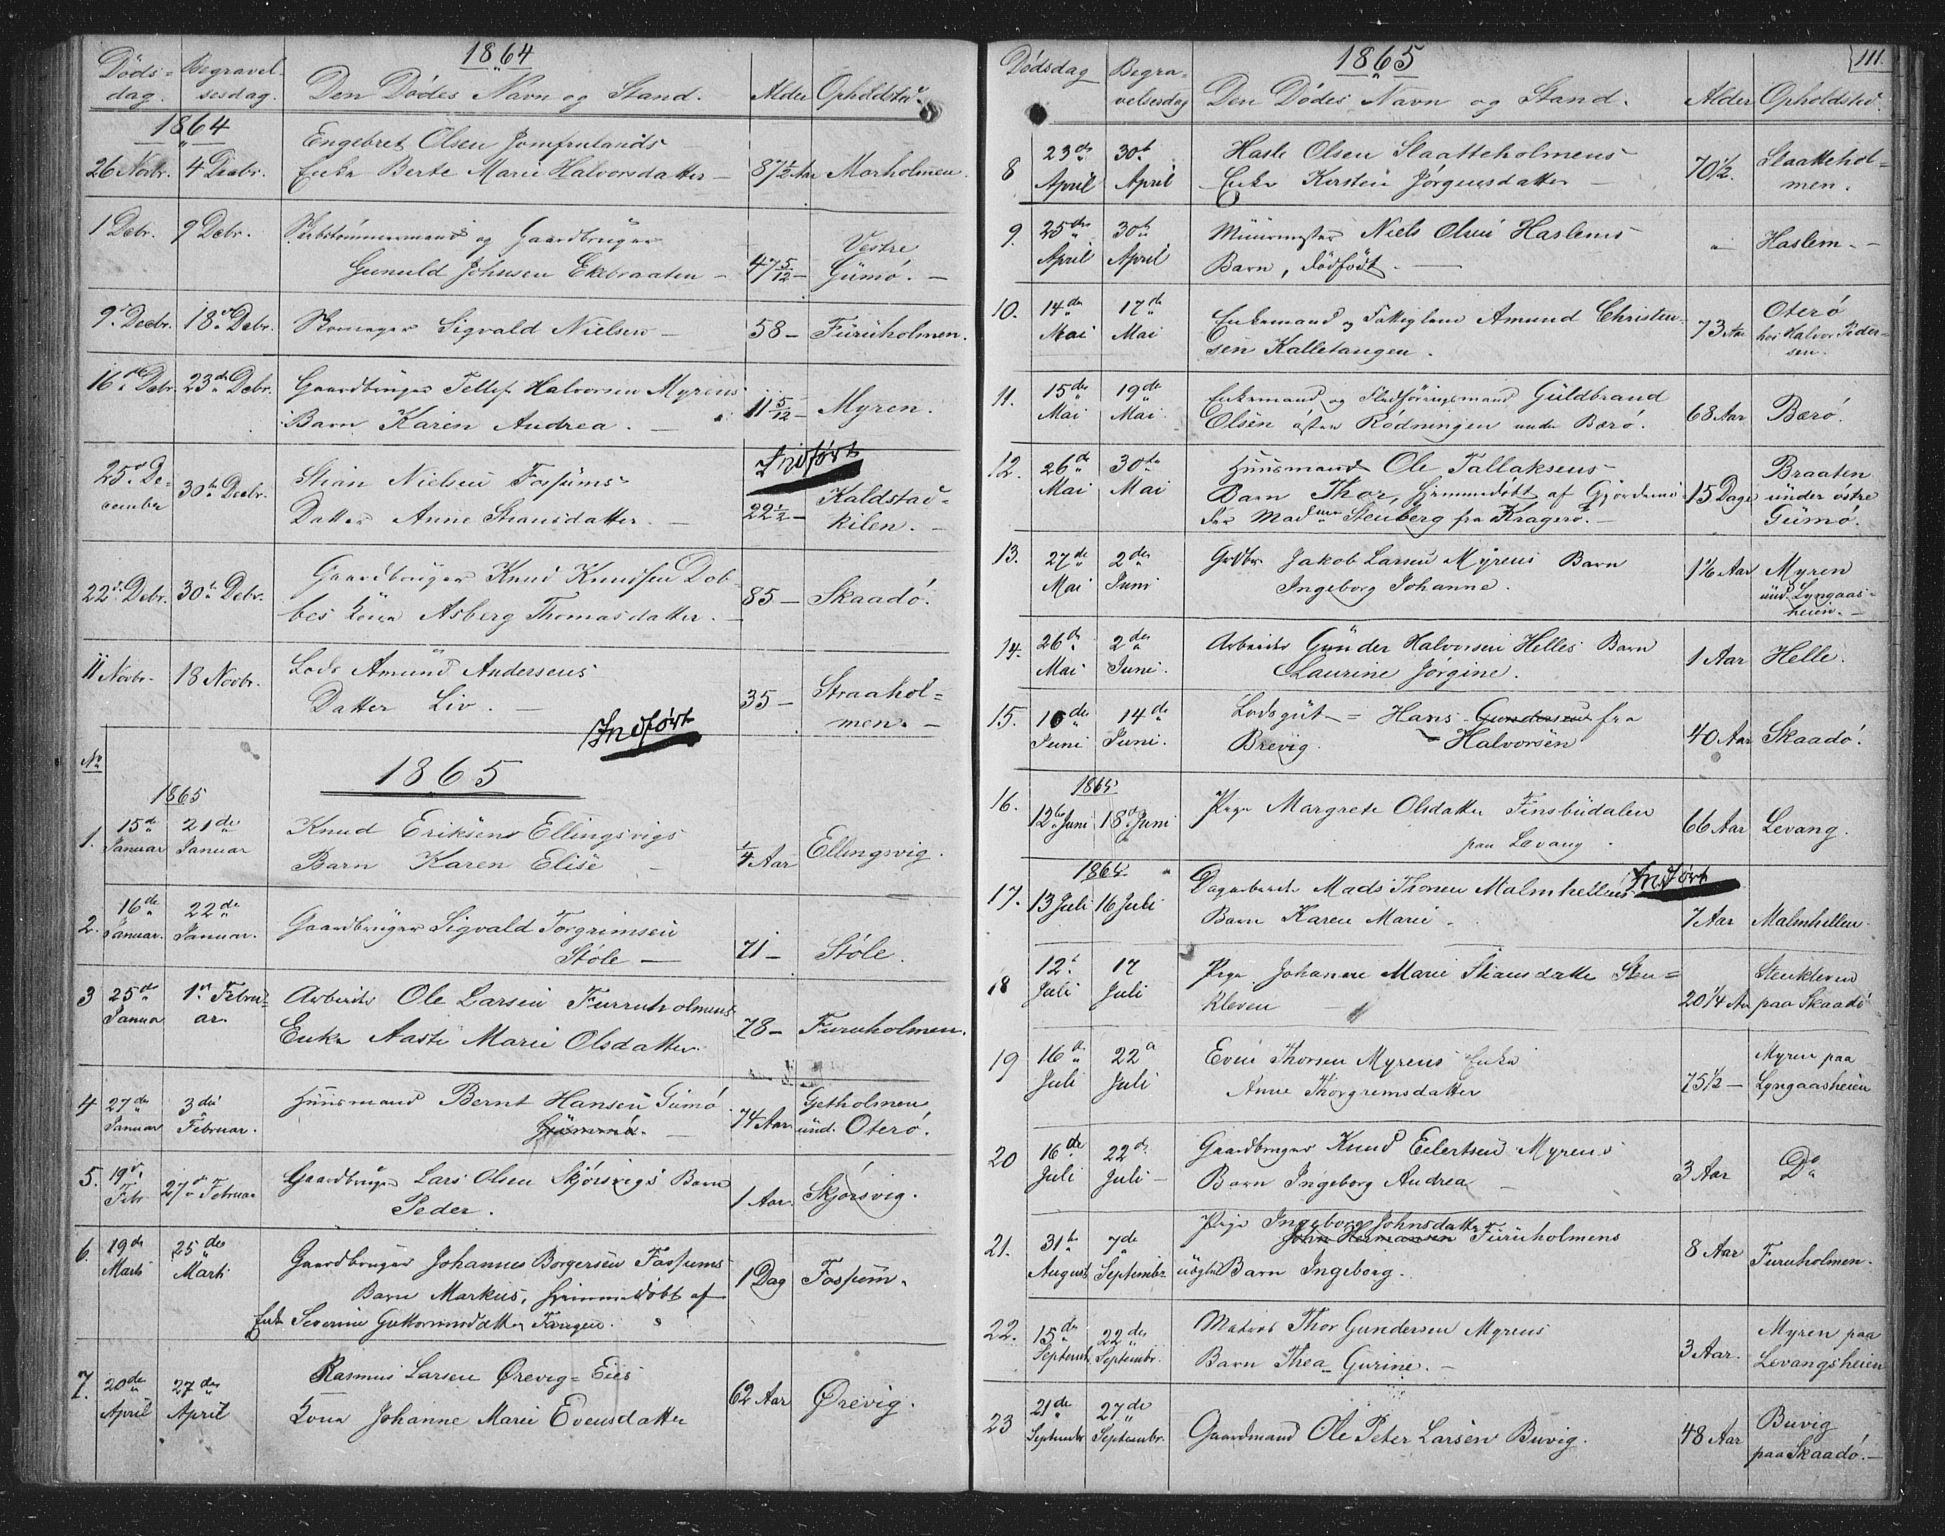 1864
Døds-
dag.
Begravel-
sesdag.
Den Dødes Navn og Stand.
Alder
Opholdsted.
1864
26 Novbr. 4 Decbr. Engebret Olsen Jomfrulands
Enke Berte Marie Halvorsdatter — 87½ Aar Morholmen.
1 Debr. 9 Debr. Skibstømmermand og Gaardbruger
Gunuld Johnsen Ekebraaten — 47 5/12 — Vestre
Gumø. —
9 Decbr. 18 Debr. Skomager Sigvald Nielsen — 58 — Furuholmen.
16 Debr. 23de Debr. Gaardbruger Tellef Halvorsen Myrens
Barn Karen Andrea. — 11 5/12 — Myren.
Indført
25 De-
cember 30te Decbr. Stian Nielsen Fossums
Datter Anne Stiansdatter. — 22½ — Kaldstad-
kilen. —
22 Debr. 30te Debr. Gaardbruger Knud Knudsen Dob-
bes Kone Asberg Thomasdatter. — 85 — Skaadø.
11 Novbr. 18 Novbr. Lods Amund Andersens
Datter Liv. — 35 — Straahol-
men. —
Indført
No
1865
1865
1. 15de
Januar 21de
Januar Knud Eriksens Ellingsvigs
Barn Karen Elise — ¼ Aar Ellingsvig.
2. 16de
Januar. 22de
Januar. Gaardbruger Sigvald Torgrimsen
Støle — 71 — Støle.
3 25de
Januar 1ste Febru-
ar. Arbeider Ole Larsen Furruholmens
Enke Aaste Marie Olsdatter. 78 — Furuholmen.
4 27de
Januar 3die
Februar. Huusmand Bernt Hansen Gumø
74 Aar Getholmen
und. Oterø.
5. 19de
Febr 27de Februar Gaardbruger Lars Olsen Skjørsvigs Barn
Peder. 1 Aar. Skjørsvig.
6. 19de
Marts 25de
Marti Gaardbruger Johannes Borgersen Fossums
Barn Markus, hjemmedøbt af
Enke Severine Guttormsdatter Tangen. 1 Dag Fossum.
7. 20de
April 27de
April Rasmus Larsen Ørevig-Eies
Kone Johanne Marie Evensdatter 62 Aar Ørevig.
1865
111.
Dødsdag
Begra-
velsesdag
Den Dødes Navn og Stand.
Alder
Opholdsted.
8 23de
April 30te
April Hasle Olsen Slaatteholmens
Enke Kirsten Jørgensdatter — 70½. Slaattehol-
men.
9. 25de
April 30te
April Muurmester Niels Olsen Haslems
Barn, dødfødt. — Haslem. —
10. 14de
Mai 17de
Mai Enkemand og Fattiglem Amund Christen-
sen Kalletangen. 73 Aar Oterø
hos Halvor Peder-
sen.
11. 15de
Mai 19de
Mai Enkemand og Guldbrand
Olsen østre Rødningen under Bærø. 68 Aar Bærø.
12. 26de
Mai 30te
Mai Huusmand Ole Tallaksens
Barn Thor, hjemmedøbt af Gjordemo-
der Madme Stenberg fra Kragerø. — 15 Dage Braaten
under østre
Gumø.
13. 27de
Mai 2den
Juni Grdbr Jakob Larsen Myrens Barn
Ingeborg Johanne. 1½ Aar Myren
und. Lyngaas-
heien. —
14. 26de
Mai 2den
Juni. Arbeider Gunder Halvorsen Helles Barn
Laurine Jørgine. 1 Aar Helle.
15. 10de
Juni 14de
Juni. Lodsgut — Hans Gundersen fra
Brevig. Halvorsen 40 Aar Skaadø.
16. 1865
12te Juni 18de Juni Pige Margrete Olsdatter Finsbudalen
paa Levang. 66 Aar Levang.
17. 1865
13 Juli 16 Juli Dagarbeider Mads Thorsen Malmhellens
Indført
Barn Karen Marie. 7 Aar Malmhellen.
18 12te
Juli 17
Juli Pige Johanne Marie Stiansdatter Sten-
kleven — 20¼ Aar Stenkleven
paa Skaadø
19 16de
Juli 22de
Juli Even Thorsen Myrens Enke
Anne Thorgrimsdatter 75½ — Myren paa
Lyngaasheien
20 16de
Juli 22de
Juli — Gaardbruger Knud Eilertsen Myrens
Barn Ingeborg Andrea 3 Aar Do
21. 31te
August 7de
Septembr. Pige Ingeborg Johnsdatter
John Hermansen Furuholmens
uægte Barn Ingeborg. 8 Aar Furuholmen.
22. 15de
Septembr. 22de
Septembr. Matros Thor Gundersen Myrens
Barn Thea Gurine. — 3 Aar. Myren paa
Levangsheien
23 21de
Septembr 27de
Septembr. Gaardmand Ole Peter Larsen Buvig. 48 Aar Buvig
paa Skaadø. —